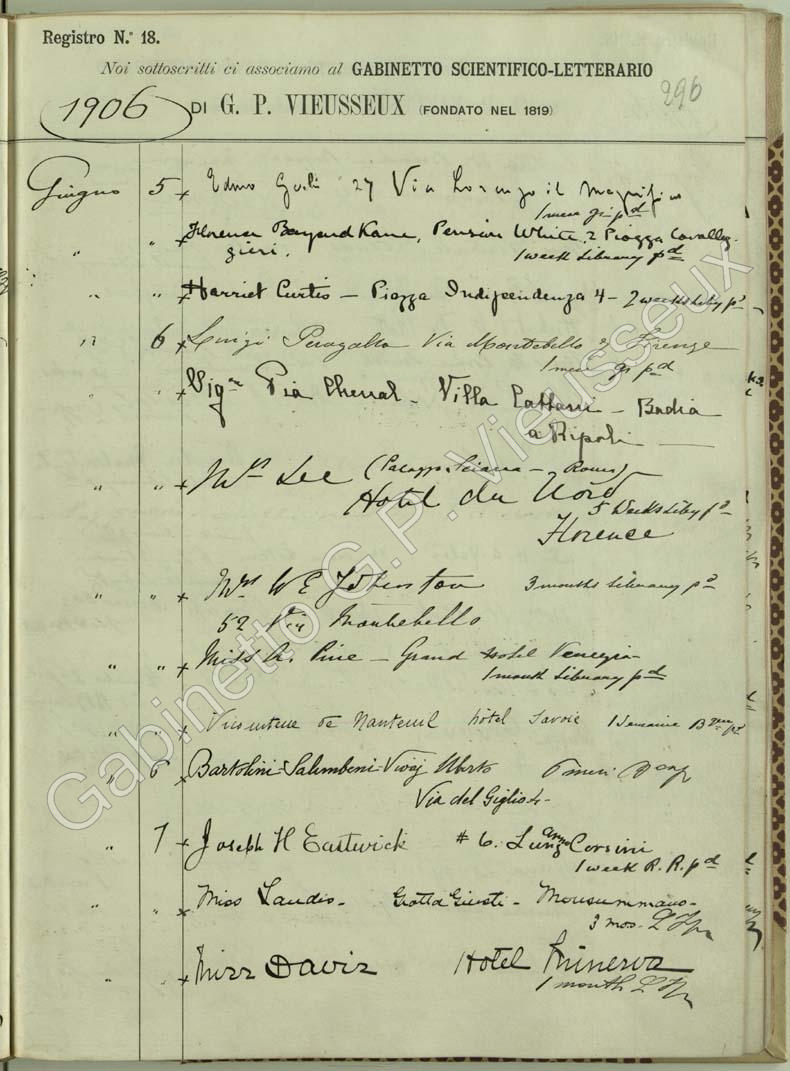 Registro N.º 18.
Noi sottoscritti ci associamo al GABINETTO SCIENTIFICO-LETTERARIO
296
1906 DI G. P. VIEUSSEUX (FONDATO NEL 1819)
Giugno 5 x 27 Via Lorenzo il Magnifico
1 mese pd
" " Florence Bayard Kane, Pension White, 2 Piazza Cavalleg-
gieri. 1 week Library pd
" " x Harriet Curtis - Piazza Indipendenza 4 - 2 weeks Liby pd
" 6 x Luigi Via Montebello Firenze
1 mese pd
" " x Sigra Pia Chenal - Villa - Badia
a Ripoli
" " x Mrs Lee (Palazzo Sciarra - Rome)
Hotel du Nord
5 Weeks Liby pd
Florence
" " x Mrs W E Johnston 3 months Library pd
52 Via Montebello
" " x Miss A. Pine - Grand Hotel Venezia
1 month Library pd
" " x Vicomtesse de Nanteuil hôtel Savoie 1 Semaine
" 6 x Bartolini-Salimbeni-Vivaj Uberto 6 mesi
Via del Giglio 4-
" 7 x Joseph H Eastwick # 6. Lungarno Corsini
1 week R. R. pd
" " x Miss Landis - Grotta Giusti - Monsummano -
3 mos. L
" x Miss Davis Hotel Minerva
1 month L
Gabinetto G.P. Vieusseux